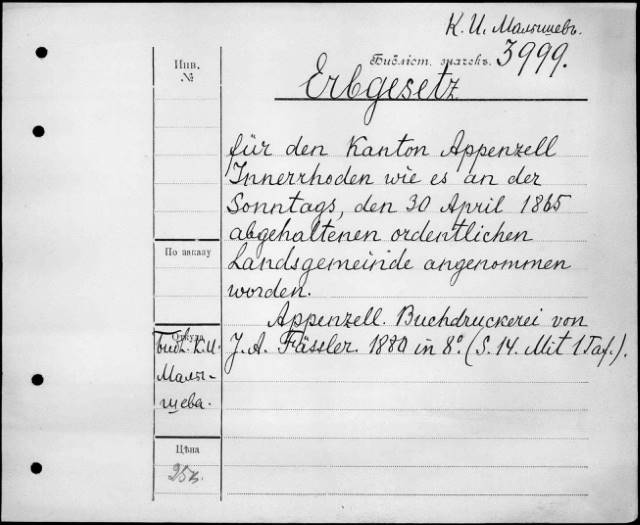 К. И. Малышевъ.
Инв.
№
Библіот. значекъ. 3999.
Erbgesetz
für den Kanton Appenzell
Innerrhoden wie es an der
Sonntags, den 30 April 1865
abgehaltenen ordentlichen
По заказу
Landsgemeinde angenommen
worden.
Appenzell. Buchdruckerei von
Откуда
Библ. К. И.
J. A. Fässler. 1880 in 8º. (S. 14. Mit 1 Taf.).
Малы-
шева.
Цѣна
25к.